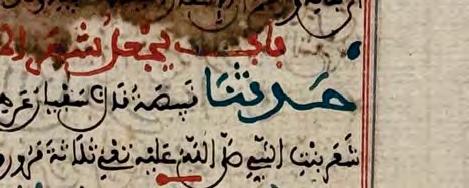 باب يجعل شعر
حدثنا قبيصة قال سفيان عن
شعر بنت النبي صلى الله عليه تعني ثلاثة قرون